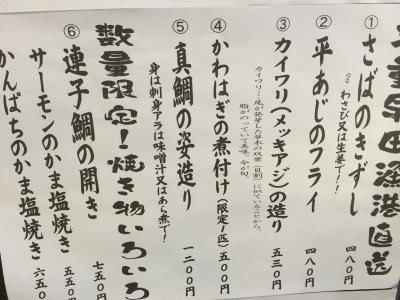 三重早田漁港直送
①さばのきずし 四八〇円
(合う)わさび又は生姜で!
②平あじのフライ 四八〇円
③カイワリ(メッキアジ)の造り 五三〇円
カイワリ…尾が発芽した草木の双葉(貝割)に似ていることから。
脂がのっていて美味。今が旬。
④かわはぎの煮付け(限定1匹)五〇〇円
⑤真鯛の姿造り 一二〇〇円
身は刺身アラは味噌汁又はあら煮で!
数量限定!焼き物いろいろ
⑥連子鯛の開き 七五〇円
サーモンのかま塩焼き 五五〇円
かんぱちのかま塩焼き 六五〇円